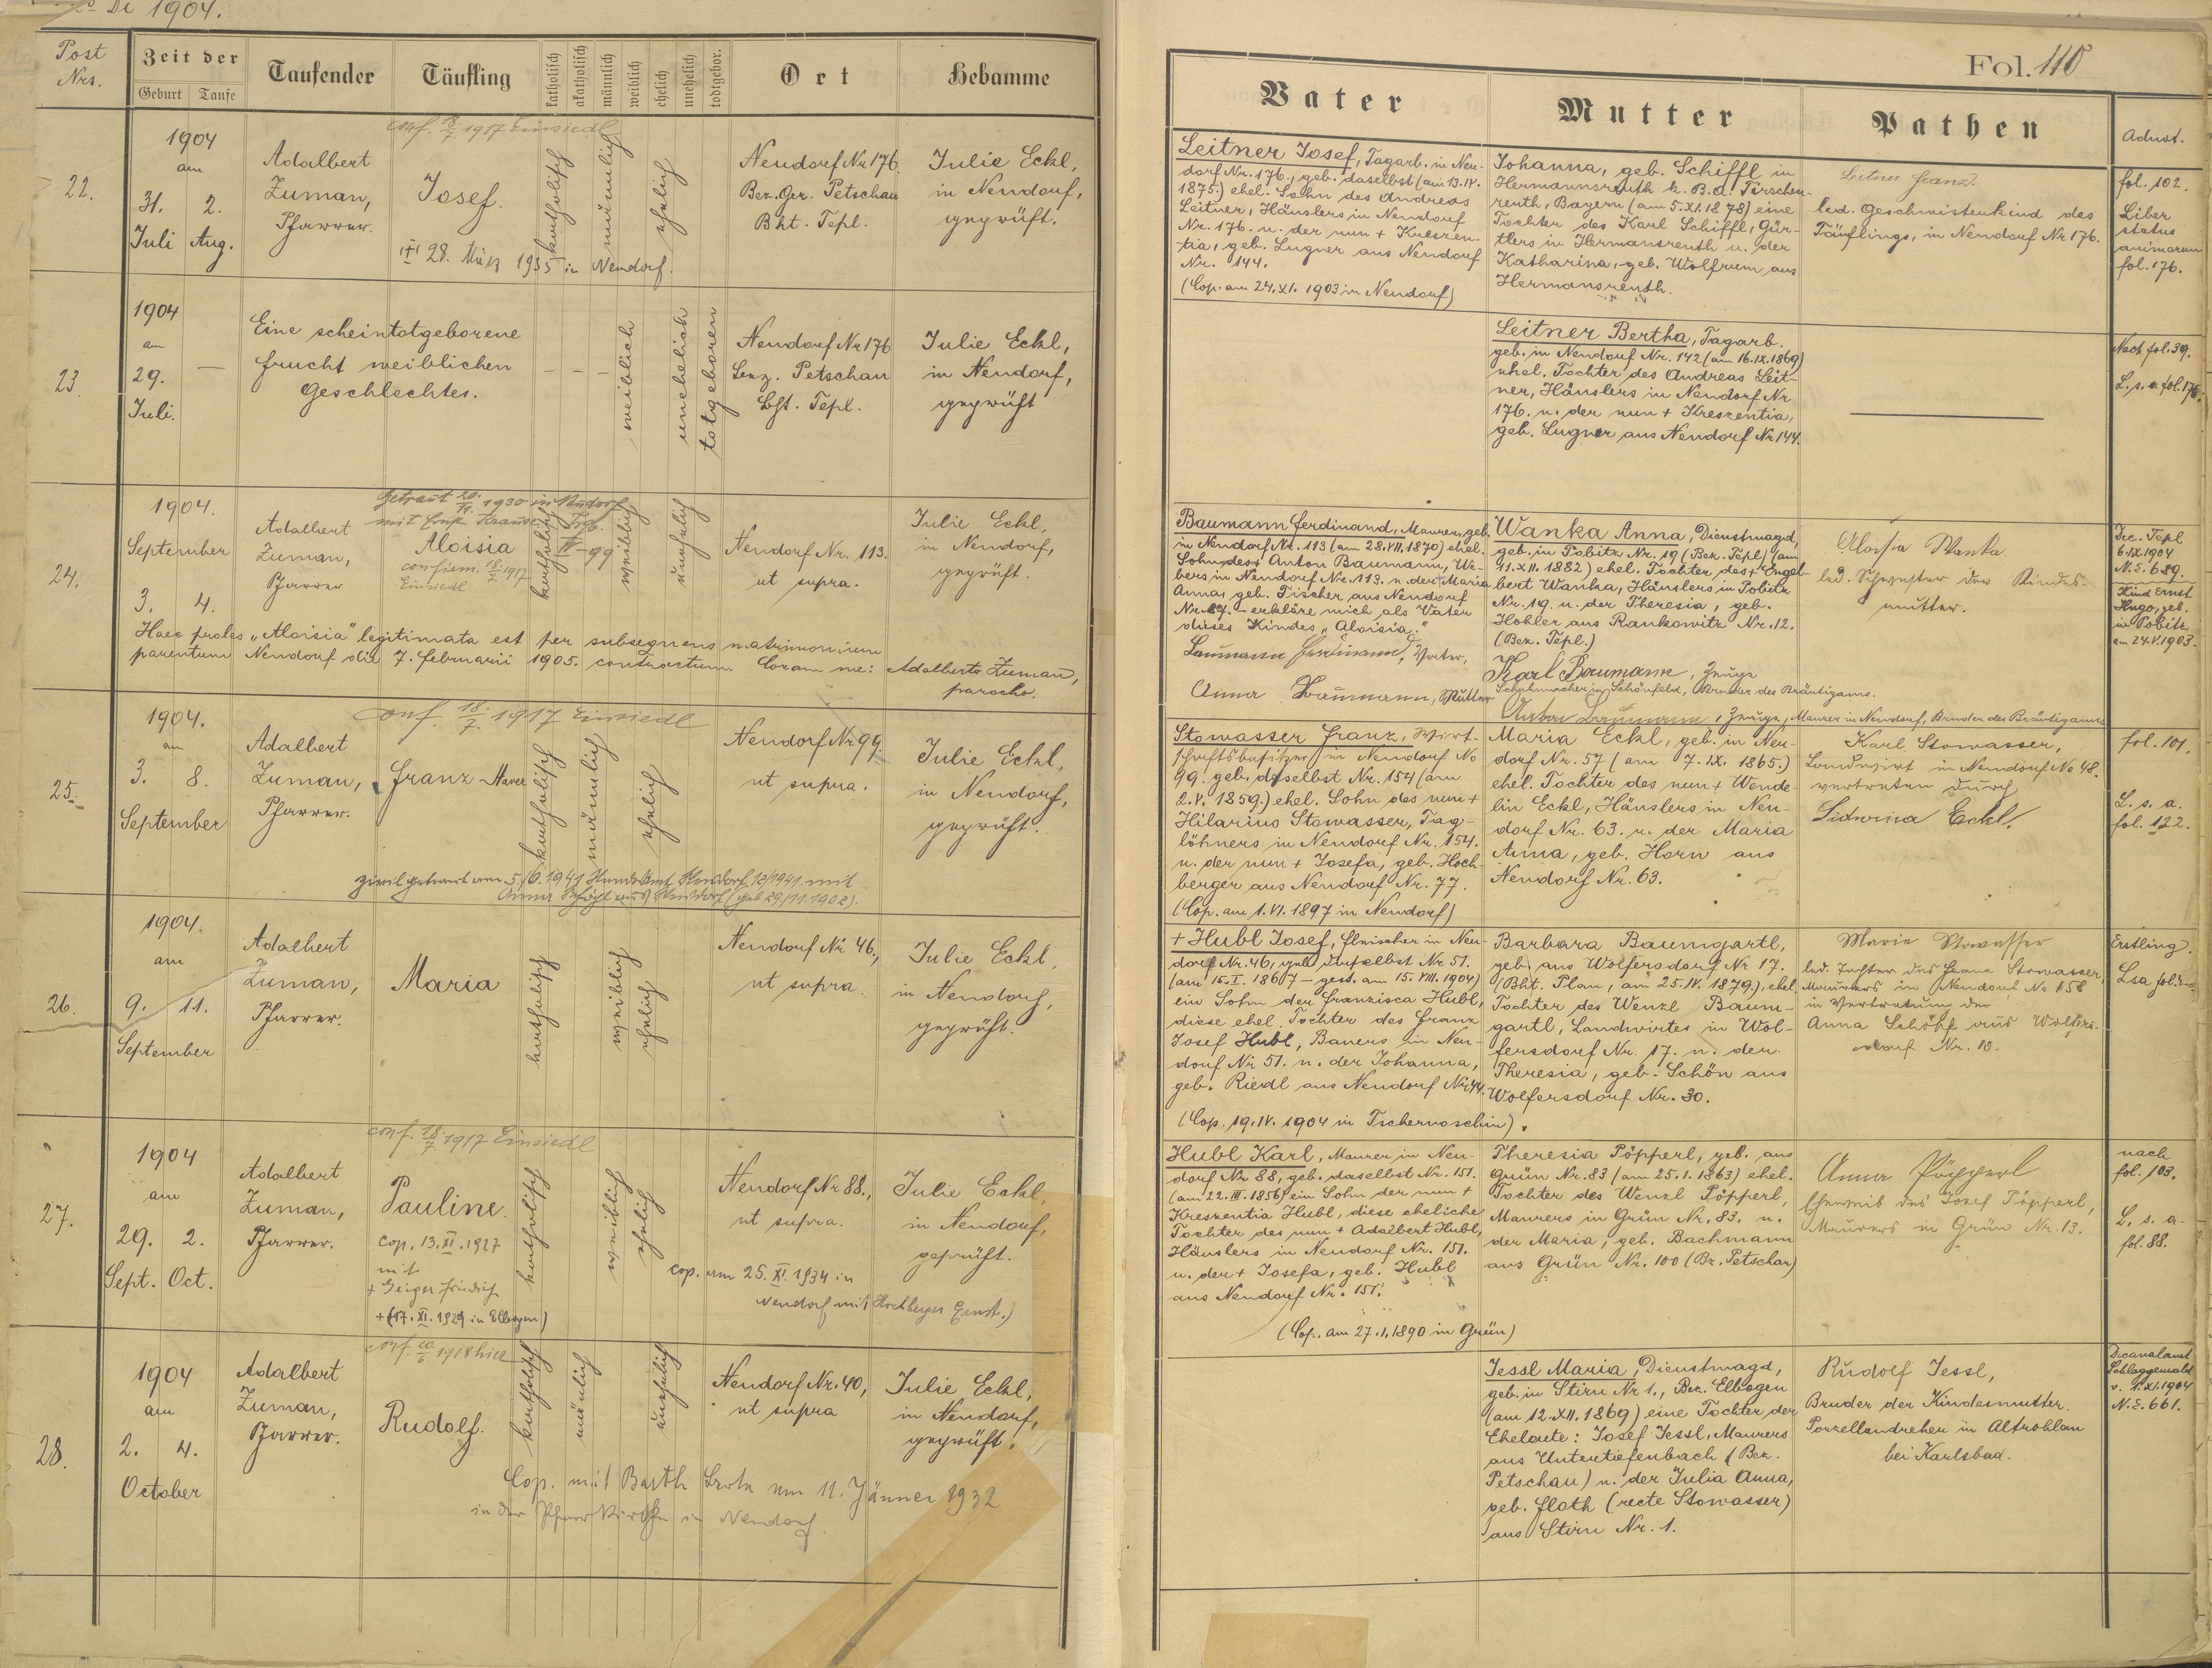 De 1904.
Post Nrs.
Zeit der
Geburt
Taufe
Taufender
Täufling
katholisch
akatholisch
männlich
weiblich
ehelich
unehelich
todtgebor.
Ort
Hebamme
Fol. 110
Vater
Mutter
Pathen
Adnot.
22.
1904
am
31. 2.
Juli Aug.
Adalbert
Zuman,
Pfarrer.
conf. 18/7. 1917 Einsiedl
Josef.
28. März 1935 in Neudorf.
katholisch
männlich
ehelich
Neudorf Nr 176.
Bez. Ger. Petschau
Bht. Tepl.
Julie Eckl,
in Neudorf,
geprüft.
Leitner Josef, Tagarb. in Neu-
dorf Nr. 176., geb. daselbst (am 13. IV.
1875.) ehel. Sohn des Andreas
Leitner, Häuslers in Neudorf
Nr. 176. u. der nun + Kreszen-
tia, geb. Lugner aus Neudorf
Nr. 144.
(Cop. am 24. XI. 1903 in Neudorf)
Johanna, geb. Schiffl in
Hermannsreuth k. B. A. Tirschen-
reuth, Bayern (am 5. XI. 1878) eine
Tochter des Karl Schiffl, Gür-
tlers in Hermansreuth u. der
Katharina, geb. Wolfrum aus
Hermansreuth.
Leitner Franz.
led. Geschwistenkind des
Täuflings, in Neudorf Nr 176.
fol. 102.
Liber
status
animarum
fol. 176.
23.
1904
am
29. —
Juli.
Eine scheintotgeborene
Frucht weiblichen
Geschlechtes.
weiblich
unehelich
totgeboren
Neudorf Nr 176
Bez. Petschau
Bht. Tepl.
Julie Eckl,
in Neudorf,
geprüft
Leitner Bertha, Tagarb.
geb. in Neudorf Nr. 142 (am 16. IX. 1869)
ehel. Tochter des Andreas Leit-
ner, Häuslers in Neudorf Nr
176. u. der nun + Kreszentia,
geb. Lugner aus Neudorf Nr 144.
Nach fol. 39.
L. s. a. fol. 176.
24.
1904.
September
3. 4.
Adalbert
Zuman,
Pfarrer
Getraut 1930 in Neudorf
mit Ernst Krause
Aloisia
confirm. 18/7 1917
Einsiedl
katholisch
weiblich
unehelich
Neudorf Nr. 113.
ut supra.
Julie Eckl,
in Neudorf,
geprüft.
Haec proles „Aloisia" legitimata est per subsequens matrimonium
parentum Neudorf die 7. Februarii 1905. contractum. Coram me: Adalberto Zuman,
parocho.
Baumann Ferdinand, Maurer, geb.
in Neudorf Nr. 113 (am 28. VII. 1870) ehel.
Sohn des + Anton Baumann, We-
bers in Neudorf Nr. 113. u. der Maria
Anna, geb. Fischer aus Neudorf
Nr. 47. – erkläre mich als Vater
dieses Kindes „Aloisia."
Baumann Ferdinand, Vater,
Anna Baumann, Mutter
Wanka Anna, Dienstmagd,
geb. in Pobitz Nr. 19 (Bez. Tepl) (am
11. XII. 1882) ehel. Tochter des + Engel-
bert Wanka, Häuslers in Pobitz
Nr. 19. u. der Theresia, geb.
Hohler aus Rankowitz Nr. 12.
(Bez. Tepl.)
Karl Baumann, Zeuge
Schuhmacher in Schönfeld, Bruder des Bräutigams.
Anton Baumann, Zeuge, Maurer in Neudorf, Bruder des Bräutigams
Aloisia Wanka
led. Schwester der Kindes-
mutter.
Dec. Tepl
6. IX. 1904
N. E. 689.
Kind Ernst
Hugo, geb.
in Pobitz
am 24. V. 1903.
25.
1904.
am
3. 8.
September
Adalbert
Zuman,
Pfarrer.
conf. 18./7. 1917 Einsiedl
Franz Xaver
katholisch
männlich
ehelich
Neudorf Nr 99.
ut supra.
Julie Eckl,
in Neudorf,
geprüft.
zivil getraut am 5./6. 1941 Standesamt Neudorf 12/1941. mit
Anna aus Neudorf (geb 29/11. 1902).
Stowasser Franz, Wirt-
schaftsbesitzer in Neudorf No
99. geb. daselbst Nr. 154 (am
2. V. 1859.) ehel. Sohn des nun +
Hilarius Stowasser, Tag-
löhners in Neudorf Nr. 154.
u. der nun + Josefa, geb. Hoch-
berger aus Neudorf Nr. 77.
(Cop. am 1. VI. 1897 in Neudorf)
Maria Eckl, geb. in Neu-
dorf Nr. 57 (am 7. IX. 1865.)
ehel. Tochter des nun + Wende-
lin Eckl, Häuslers in Neu-
dorf Nr. 63. u. der Maria
Anna, geb. Horn aus
Neudorf Nr. 63.
Karl Stowasser,
Landwirt in Neudorf No 48.
vertreten durch
Sidonia Eckl.
fol. 101.
L. s. a.
fol. 122.
26.
1904.
am
9. 11.
September
Adalbert
Zuman,
Pfarrer.
Maria
katholisch
weiblich
ehelich
Neudorf Nr 46.,
ut supra.
Julie Eckl,
in Neudorf,
geprüft.
+ Hubl Josef, Fleischer in Neu-
dorf Nr. 46, geb. daselbst Nr 51.
(am 15. I. 1867 – gest. am 15. VIII. 1904)
ein Sohn der Franzisca Hubl,
diese ehel. Tochter des Franz
Josef Hubl, Bauers in Neu-
dorf Nr 51. u. der Johanna,
geb. Riedl aus Neudorf Nr 44.
(Cop. 19. IV. 1904 in Tschernoschin).
Barbara Baumgartl,
geb. aus Wolfersdorf Nr 17.
(Bht. Plan, am 25. IV. 1879.), ehel.
Tochter des Wenzl Baum-
gartl, Landwirtes in Wol-
fersdorf Nr. 17. u. der
Theresia, geb. Schön aus
Wolfersdorf Nr. 30.
Marie Stowasser
led. Tochter des Franz Stowasser,
Maurers in Neudorf No 158
in Vertretung der
Anna Schöpf aus Wolfers-
dorf Nr. 10.
Erstling.
Lsa fol.
27.
1904
am
29. 2.
Sept. Oct.
Adalbert
Zuman,
Pfarrer.
conf. 18/7. 1917 Einsiedl
Pauline.
cop. 13. XI. 1927
mit
+ Geiger Friedrich
+ (17. XI. 1929 in Elbogen)
katholisch
weiblich
ehelich
Neudorf Nr 88.,
ut supra.
Julie Eckl,
in Neudorf,
geprüft.
cop. am 25. XI. 1934 in
Neudorf mit Hochberger Ernst.)
Hubl Karl, Maurer in Neu-
dorf Nr 88, geb. daselbst Nr. 151.
(am 22. III. 1856) ein Sohn der nun +
Kreszentia Hubl, diese eheliche
Tochter des nun + Adalbert Hubl,
Häuslers in Neudorf Nr. 151.
u. der + Josefa, geb. Hubl
aus Neudorf Nr. 151.
(Cop. am 27. 1. 1890 in Grün)
Theresia Pöpperl, geb. aus
Grün Nr. 83 (am 25. 1. 1863) ehel.
Tochter des Wenzl Pöpperl,
Maurers in Grün Nr. 83. u.
der Maria, geb. Bachmann
aus Grün Nr. 100 (Bz. Petschau)
Anna Pöpperl
Eheweib des Josef Pöpperl,
Maurers in Grün Nr. 13.
nach
fol. 103.
L. s. a.
fol. 88.
28.
1904
am
2. 4.
October
Adalbert
Zuman,
Pfarrer.
conf. 1918 hier
Rudolf.
katholisch
männlich
unehelich
Neudorf Nr. 40,
ut supra
Julie Eckl,
in Neudorf,
geprüft.
Cop. mit Barth am 11. Jänner 1932
in der Pfarrkirche in Neudorf.
Jessl Maria, Dienstmagd,
geb. in Stirn Nr 1., Bez. Elbogen
(am 12. XII. 1869) eine Tochter der
Eheleute: Josef Jessl, Maurers
aus Untertiefenbach (Bez.
Petschau) u. der Julia Anna,
geb. Floth (recte Stowasser)
aus Stirn Nr. 1.
Rudolf Jessl,
Bruder der Kindesmutter.
Porzellandreher in Altrohlau
bei Karlsbad.
Decanalamt
Schlaggenwald
v. 1. XI. 1904
N. E. 661.